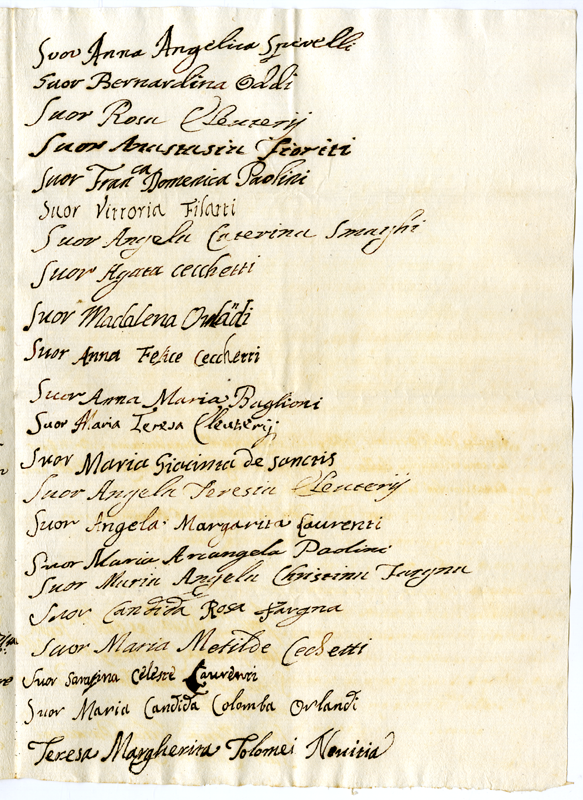 Suor Anna Angelica Sperelli
Suor Bernardina Oddi
Suor Rosa Eleuterij
Suor Anastasia Fioriti
Suor Fran.ca Domenica Paolini
Suor Vittoria Filatti
Suor Angela Caterina Smaghi
Suor Agata Cecchetti
Suor Madalena
Suor Anna Felice Cecchetti
Suor Anna Maria Baglioni
Suor Maria Teresa Eleuterij
Suor Maria Giacinta de Sanctis
Suor Angela Teresia Eleuterij
Suor Angela Margarita Laurenti
Suor Maria Arcangela Paolini
Suor Maria Angela Christina Fargna
Suor Candida Rosa Fargna
Suor Maria Metilde Cechetti
Suor Serafina Celeste Laurenti
Suor Maria Candida Colomba Orlandi
Teresa Margherita Tolomei Novitia